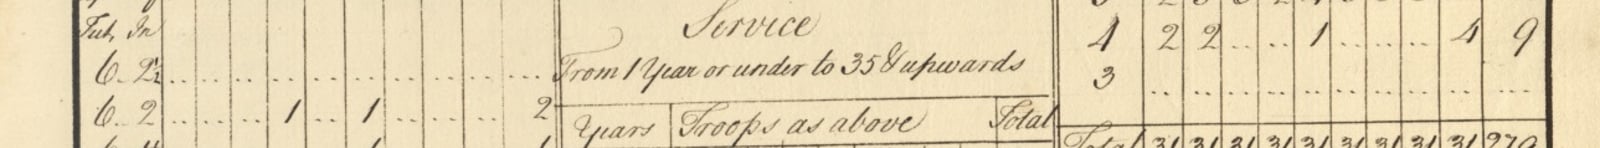 Feet, In
6.. 2½ .. .. .. .. .. .. .. .. .. .. ..
6.. 2 .. .. .. 1 .. 1 .. .. .. .. 2
Service
From 1 Year or under to 35 & upwards
Years Troops as above Total
4 2 2 .. .. 1 .. .. .. 4 9
3 .. .. .. .. .. .. .. .. .. ...
Total 31 31 31 31 31 31 31 31 31 279